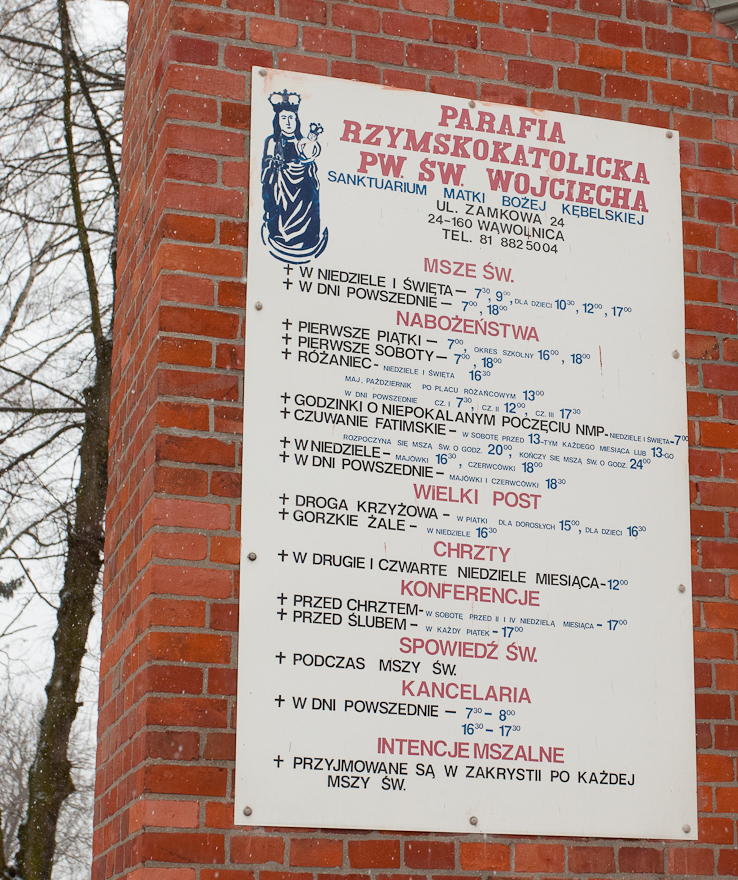 PARAFIA
RZYMSKOKATOLICKA
PW. ŚW. WOJCIECHA
SANKTUARIUM MATKI BOŻEJ KĘBELSKIEJ
UL. ZAMKOWA 24
24-160 WĄWOLNICA
TEL. 81 8825004
MSZE ŚW.
✝ W NIEDZIELE I ŚWIĘTA – 7³⁰, 9⁰⁰, DLA DZIECI 10³⁰, 12⁰⁰, 17⁰⁰
✝ W DNI POWSZEDNIE – 7⁰⁰, 18⁰⁰
NABOŻEŃSTWA
✝ PIERWSZE PIĄTKI – 7⁰⁰, OKRES SZKOLNY 16⁰⁰, 18⁰⁰
✝ PIERWSZE SOBOTY – 7⁰⁰, 18⁰⁰
✝ RÓŻANIEC - NIEDZIELE I ŚWIĘTA 16³⁰
MAJ, PAŹDZIERNIK PO PLACU RÓŻAŃCOWYM 13⁰⁰
W DNI POWSZEDNIE CZ. I 7³⁰, CZ. II 12⁰⁰, CZ. III 17³⁰
✝ GODZINKI O NIEPOKALANYM POCZĘCIU NMP - NIEDZIELE I ŚWIĘTA - 7⁰⁰
✝ CZUWANIE FATIMSKIE - W SOBOTĘ PRZED 13-TYM KAŻDEGO MIESIĄCA LUB 13-GO
ROZPOCZYNA SIĘ MSZĄ ŚW. O GODZ. 20⁰⁰, KOŃCZY SIĘ MSZĄ ŚW. O GODZ. 24⁰⁰
✝ W NIEDZIELE - MAJÓWKI 16³⁰, CZERWCÓWKI 18⁰⁰
✝ W DNI POWSZEDNIE - MAJÓWKI I CZERWCÓWKI 18³⁰
WIELKI POST
✝ DROGA KRZYŻOWA - W PIĄTKI DLA DOROSŁYCH 15⁰⁰, DLA DZIECI 16³⁰
✝ GORZKIE ŻALE - W NIEDZIELE 16³⁰
CHRZTY
✝ W DRUGIE I CZWARTE NIEDZIELE MIESIĄCA - 12⁰⁰
KONFERENCJE
✝ PRZED CHRZTEM - W SOBOTĘ PRZED II I IV NIEDZIELĄ MIESIĄCA - 17⁰⁰
✝ PRZED ŚLUBEM - W KAŻDY PIĄTEK - 17⁰⁰
SPOWIEDŹ ŚW.
✝ PODCZAS MSZY ŚW.
KANCELARIA
✝ W DNI POWSZEDNIE – 7³⁰ - 8⁰⁰
16³⁰ - 17³⁰
INTENCJE MSZALNE
✝ PRZYJMOWANE SĄ W ZAKRYSTII PO KAŻDEJ
MSZY ŚW.